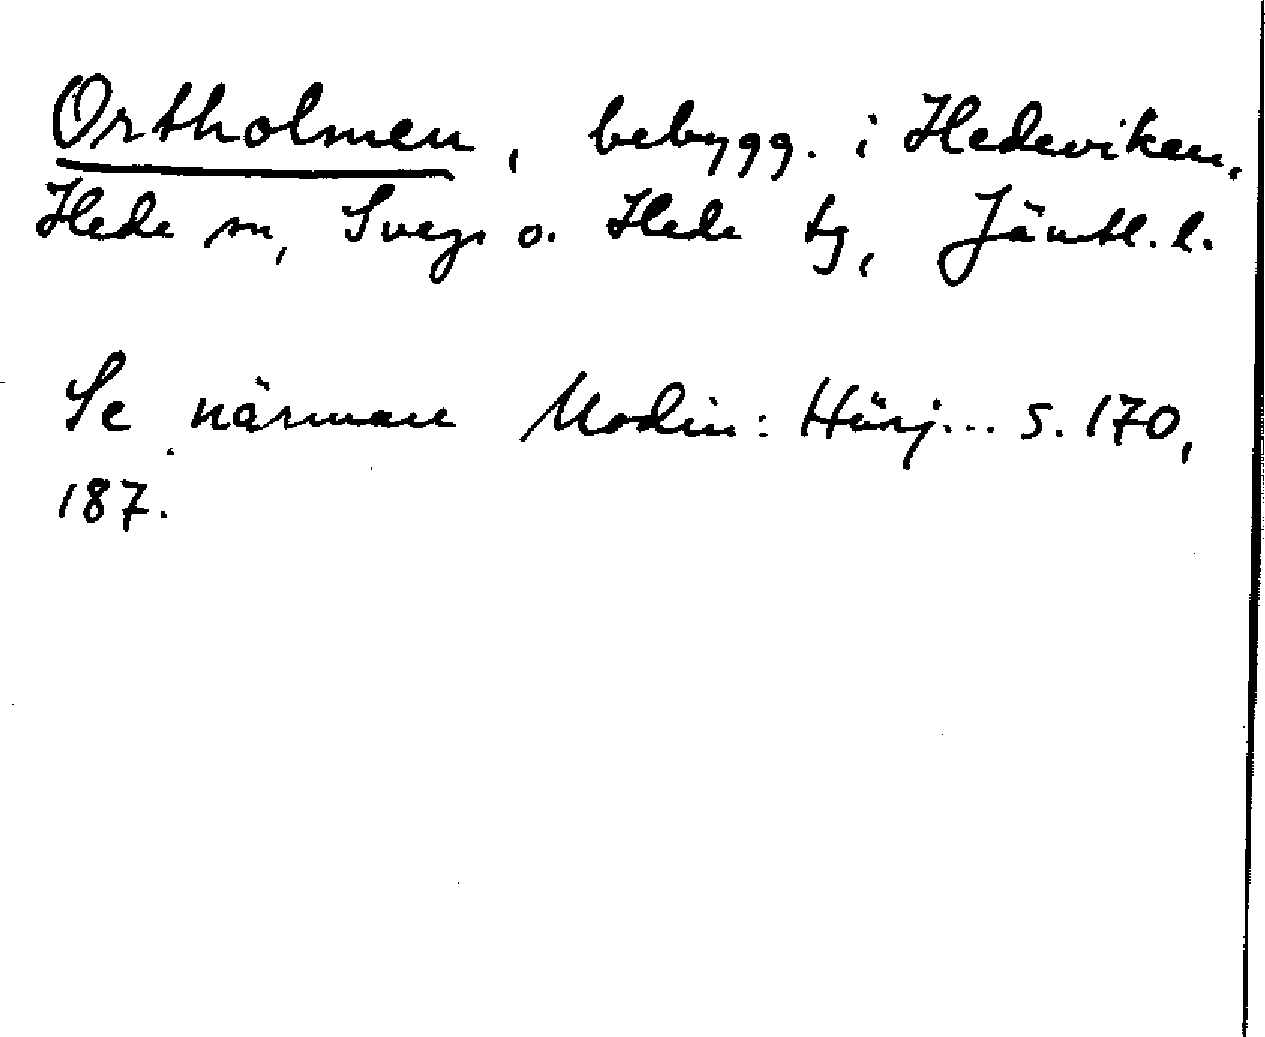 Ortholmen, bebygg. i Hedeviken,
Hede sn, Svegs o. Hede tg, Jämtl. l.
Se närmare Modin: Härj... s. 170,
187.